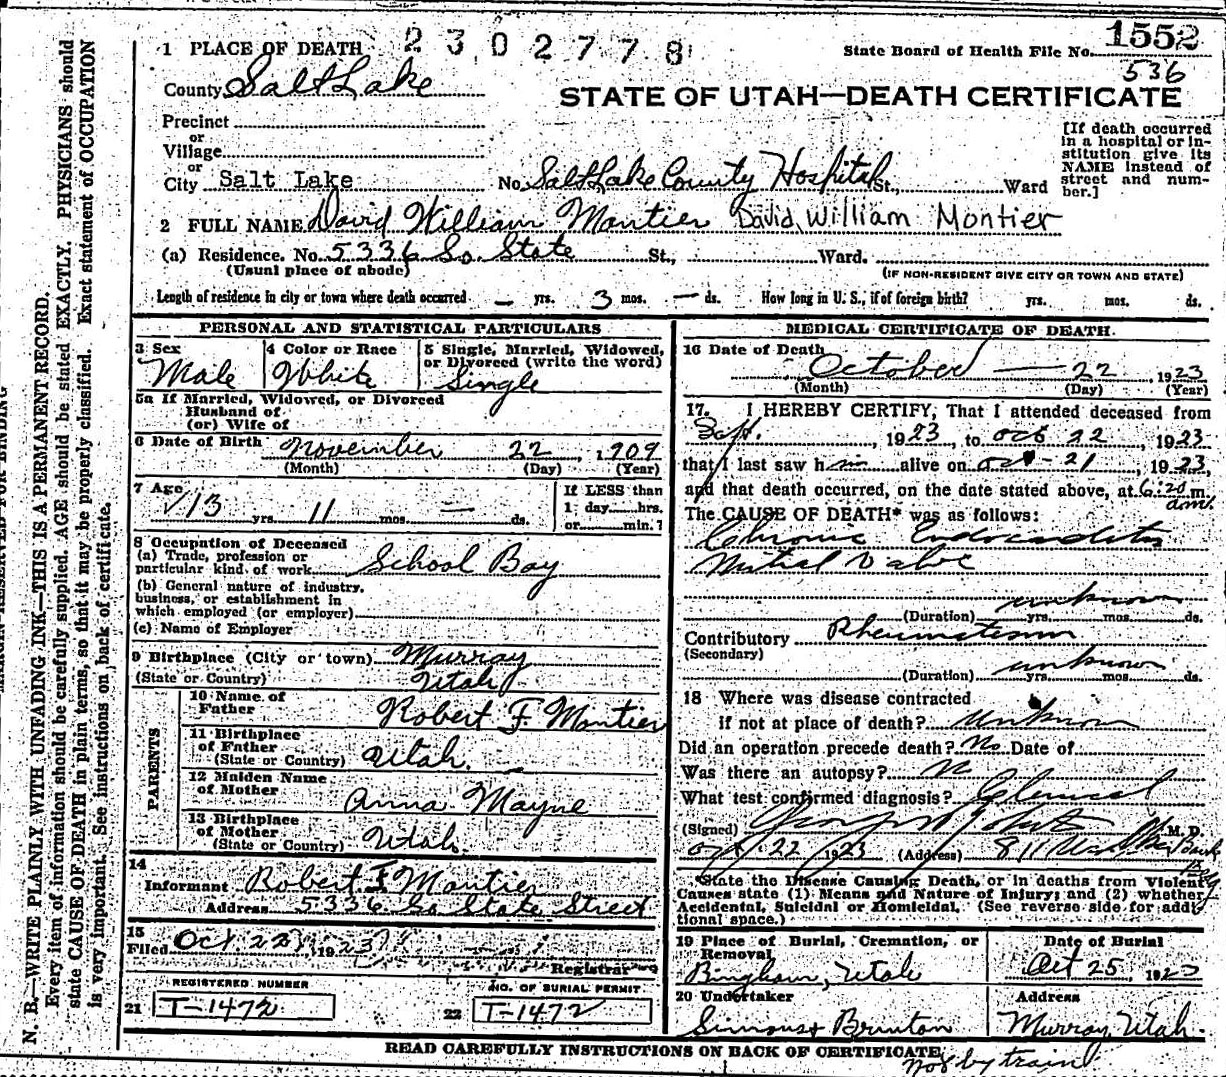 2302778
State Board of Health File No. 1552
536
1 PLACE OF DEATH
County Salt Lake
STATE OF UTAH—DEATH CERTIFICATE
Precinct
or
Village
or
City Salt Lake No. Salt Lake County Hospital St., Ward
[If death occurred
in a hospital or in-
stitution give its
NAME instead of
street and num-
ber.]
2 FULL NAME David William Montier David William Montier
(a) Residence. No. 5336 So. State St., Ward.
(Usual place of abode) (IF NON-RESIDENT GIVE CITY OR TOWN AND STATE)
Length of residence in city or town where death occurred — yrs. 3 mos. — ds. How long in U. S., if of foreign birth? yrs. mos. ds.
PERSONAL AND STATISTICAL PARTICULARS
3 Sex
Male
4 Color or Race
White
5 Single, Married, Widowed,
or Divorced (write the word)
Single
5a If Married, Widowed, or Divorced
Husband of
(or) Wife of
6 Date of Birth November 22, 1909
(Month) (Day) (Year)
7 Age
13 yrs. 11 mos. — ds.
If LESS than
1 day.....hrs.
or.....min.?
8 Occupation of Deceased
(a) Trade, profession or
particular kind of work School Boy
(b) General nature of industry,
business, or establishment in
which employed (or employer)
(c) Name of Employer
9 Birthplace (City or town) Murray
(State or Country) Utah
PARENTS
10 Name of
Father Robert F Montier
11 Birthplace
of Father
(State or Country) Utah.
12 Maiden Name
of Mother Anna Mayne
13 Birthplace
of Mother
(State or Country) Utah.
14
Informant Robert F Montier
Address 5336 So State Street
15
Filed Oct 22, 1923
Registrar
REGISTERED NUMBER
21 T-1472
NO. OF BURIAL PERMIT
22 T-1472
MEDICAL CERTIFICATE OF DEATH.
16 Date of Death
October — 22, 1923
(Month) (Day) (Year)
17. I HEREBY CERTIFY, That I attended deceased from
Sept., 1923, to Oct 22, 1923
that I last saw him alive on Oct - 21, 1923,
and that death occurred, on the date stated above, at 6:20 m.
am.
The CAUSE OF DEATH* was as follows:
Chronic Endocarditis
Mitral Valve
unknown
(Duration) yrs. mos. ds.
Contributory Rheumatism
(Secondary)
unknown
(Duration) yrs. mos. ds.
18 Where was disease contracted
if not at place of death? unknown
Did an operation precede death? No Date of
Was there an autopsy? No
What test confirmed diagnosis? Clinical
(Signed) M. D.
Oct. 22 1923 (Address) 811
*State the Disease Causing Death, or in deaths from Violent
Causes state (1) Means and Nature of Injury; and (2) whether
Accidental, Suicidal or Homicidal. (See reverse side for addi-
tional space.)
19 Place of Burial, Cremation, or
Removal
Bingham, Utah
Date of Burial
Oct 25, 1923
20 Undertaker
Simons & Brunton
Address
Murray, Utah.
READ CAREFULLY INSTRUCTIONS ON BACK OF CERTIFICATE
by train
N. B.—WRITE PLAINLY WITH UNFADING INK—THIS IS A PERMANENT RECORD.
Every item of information should be carefully supplied. AGE should be stated EXACTLY. PHYSICIANS should
state CAUSE OF DEATH in plain terms, so that it may be properly classified. Exact statement of OCCUPATION
is very important. See instructions on back of certificate.